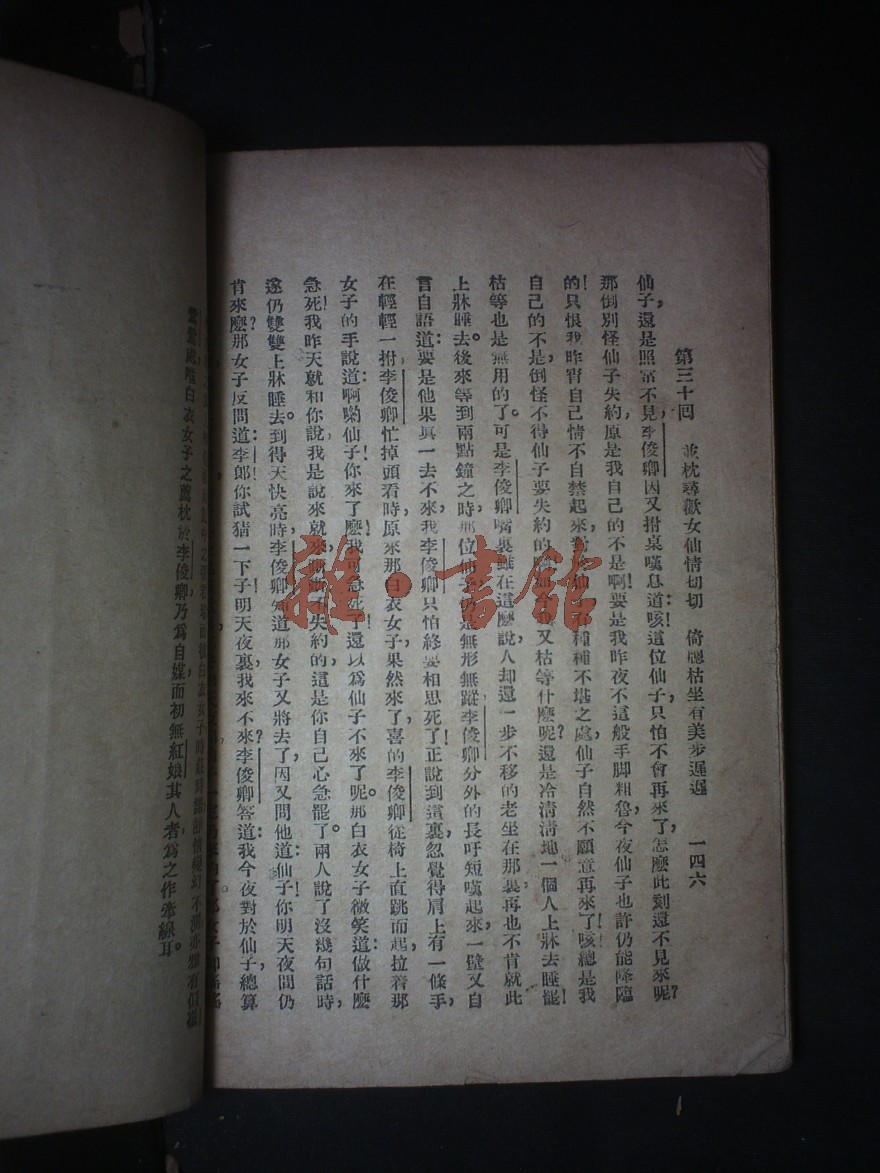 第三十回　並枕尋歡女仙情切切　倚牕枯坐有美步遲遲　一四六
仙子，還是照常不見，李俊卿因又拊桌嘆息道：咳！這位仙子只怕不會再來了，怎麽此刻還不見來呢？
那倒別怪仙子失約，原是我自己的不是啊！要是我昨夜不這般手脚粗魯，今夜仙子也許仍能降臨
的！只恨我昨宵自己情不自禁起來，對於仙子種種不堪之處，仙子自然不願意再來了！咳！總是我
自己的不是，倒怪不得仙子要失約的囉！如今又枯等什麽呢？還是冷清清地一個人上牀去睡罷！
枯等也是無用的了。可是李俊卿嘴裏雖在這麽說，人却還一步不移的老坐在那裏，再也不肯就此
上牀睡去。後來等到兩點鐘之時，那位仙子仍是無形無蹤，李俊卿分外的長吁短嘆起來，一壁又自
言自語道：要是他果眞一去不來，我李俊卿只怕終要相思死了！正說到這裏，忽覺得肩上有一條手
在輕輕一拊，李俊卿忙掉頭看時，原來那白衣女子果然來了，喜的李俊卿從椅上直跳而起，拉着那
女子的手說道：啊喲！仙子你來了麽？我可急死了！還以爲仙子不來了呢。那白衣女子微笑道：做什麽
急死！我昨天就和你說，我是說來就來，斷斷不失約的，這是你自己心急罷了。兩人說了沒幾句話時，
遂仍雙雙上牀睡去。到得天快亮時，李俊卿知道那女子又將去了，因又問他道：仙子！你明天夜間仍
肯來麽？那女子反問道：李郎！你試猜一下子，明天夜裏，我來不來？李俊卿答道：我今夜對於仙子，總算
白衣女子之薦枕於李俊卿，乃爲自媒，而初無紅娘其人者，爲之作牽線耳。
雜·書館